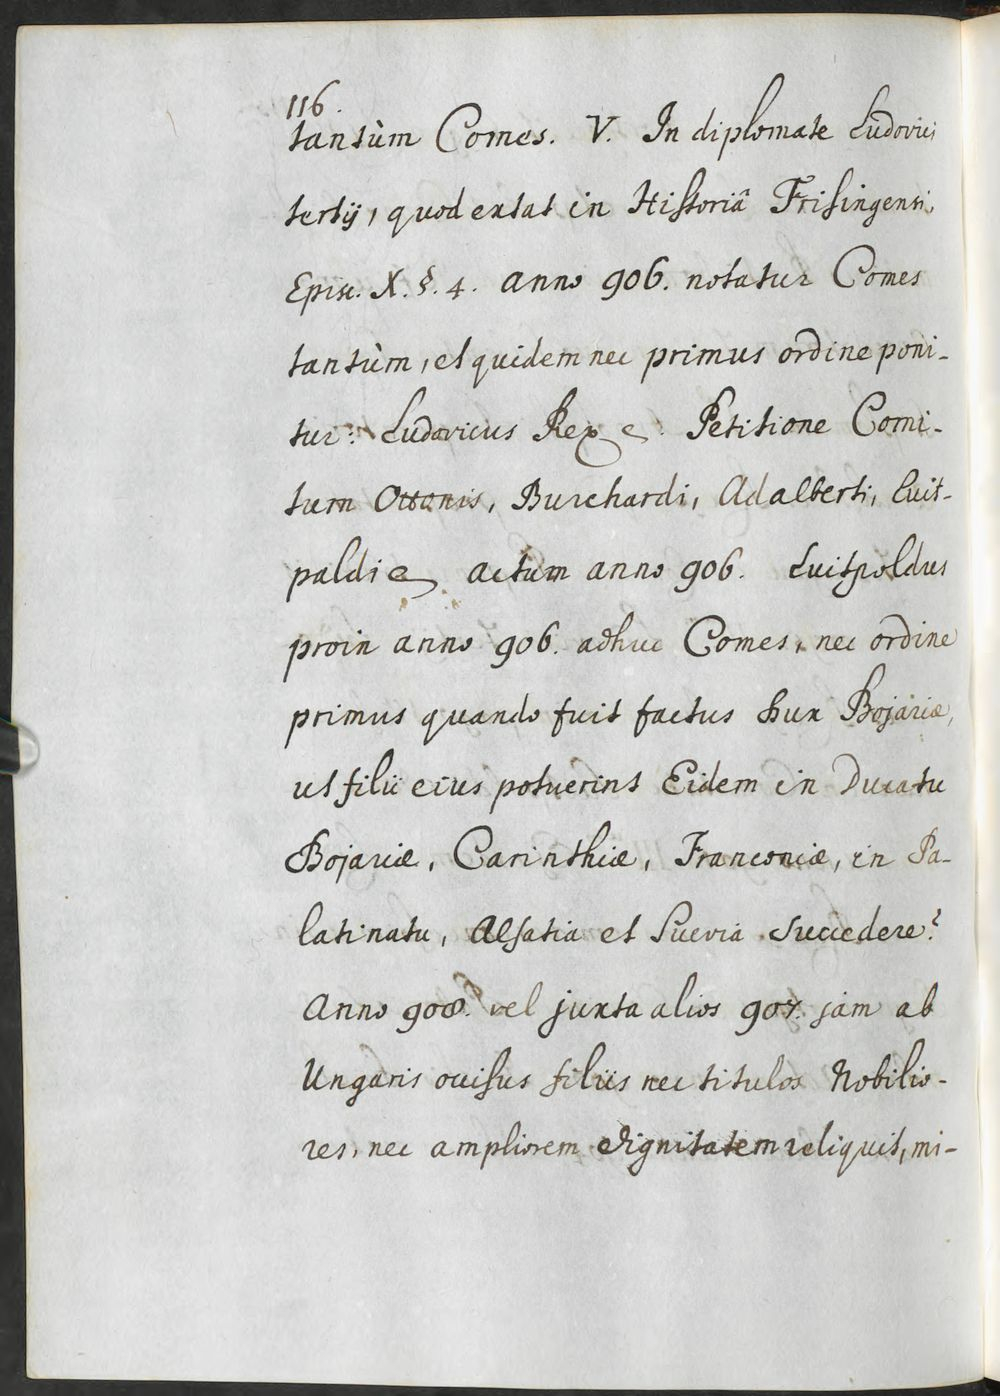 116.
tantùm Comes. V. In diplomate Ludovici
tertij, quod extat in Historiâ Frisingensi,
Episc. X. §. 4. anno 906. notatur Comes
tantùm, et quidem nec primus ordine poni-
tur: Ludovicus Rex &. Petitione Comi-
tum Ottonis, Burchardi, Adalberti, Luit-
paldi & actum anno 906. Luitpoldus
proin anno 906. adhuc Comes, nec ordine
primus quando fuit factus Dux Bojariæ,
ut filii eius potuerint Eidem in Ducatu
Bojariæ, Carinthiæ, Franconiæ, in Pa-
latinatu, Alsatia et Suevia Succedere?
Anno 908. vel juxta alios 907. jam ab
Ungaris ocisus filiis nec titulos Nobilio-
res, nec ampliorem dignitatem reliquit, mi-